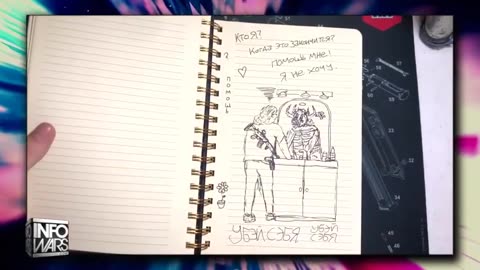 КТО Я?
КОГДА ЭТО ЗАКОНЧИТСЯ?
ПОМОЩЬ МНЕ!
Я НЕ ХОЧУ..
?
ПОМОЩЬ
УБЭЙ СЭБЯ
УБЭЙ
СЭБЯ
INFO
WARS